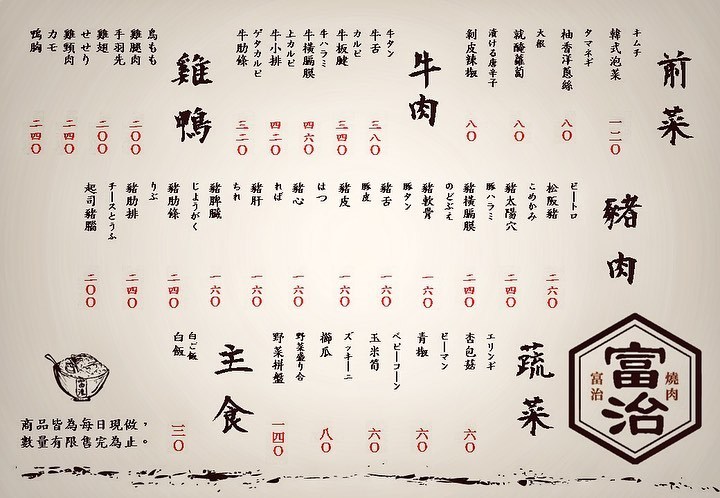 前菜
キムチ
韓式泡菜
一二〇
タマネギ
柚香洋蔥絲
八〇
大根
就醃蘿蔔
八〇
漬ける唐辛子
剝皮辣椒
八〇
牛肉
牛タン
牛舌
三八〇
カルビ
牛板腱
三四〇
牛ハラミ
牛橫膈膜
四六〇
上カルビ
牛小排
四二〇
ゲタカルビ
牛肋條
三二〇
雞鴨
鳥もも
雞腿肉
二〇〇
手羽先
雞翅
二〇〇
せせり
雞頸肉
二四〇
カモ
鴨胸
二四〇
豬肉
ピートロ
松阪豬
二六〇
こめかみ
豬太陽穴
二四〇
豚ハラミ
豬橫膈膜
二四〇
のどぶえ
豬軟骨
一六〇
豚タン
豬舌
一六〇
豚皮
豬皮
一六〇
はつ
豬心
一六〇
ればー
豬肝
一六〇
ちれ
豬脾臟
一六〇
じょうがく
豬肋條
二四〇
りぶ
豬肋排
二四〇
チースとうふ
起司豬腦
二〇〇
蔬菜
エリンギ
杏包菇
六〇
ピーマン
青椒
六〇
ベビーコーン
玉米筍
六〇
ズッキーニ
櫛瓜
八〇
野菜盛り合
野菜拼盤
一四〇
主食
白ご飯
白飯
三〇
燒肉
富治
富治
富治
商品皆為每日現做，
數量有限售完為止。